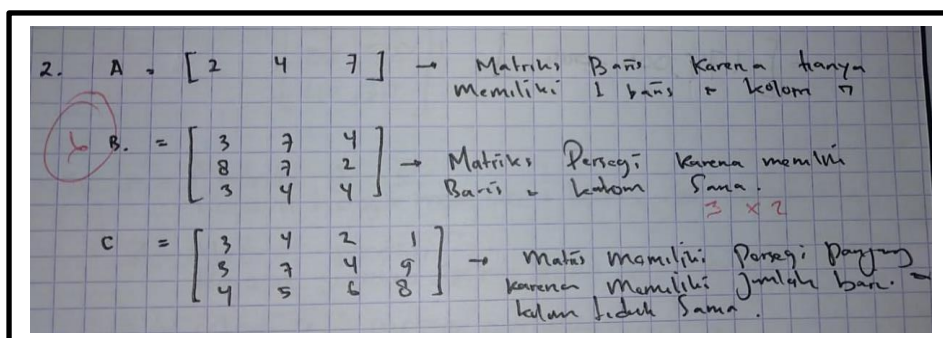 2. A = [ 2 4 7 ] → Matriks Baris Karena hanya
memiliki 1 baris + kolom n
B. = [ 3 7 4
8 7 2 → Matriks Persegi Karena memiliki
3 4 4 ] Baris = kolom Sama.
3 x 2
C = [ 3 4 2 1
3 7 4 9 → Matris Memiliki Persegi Panjang
4 5 6 8 ] karena Memiliki Jumlah bari =
kolom tidak Sama.